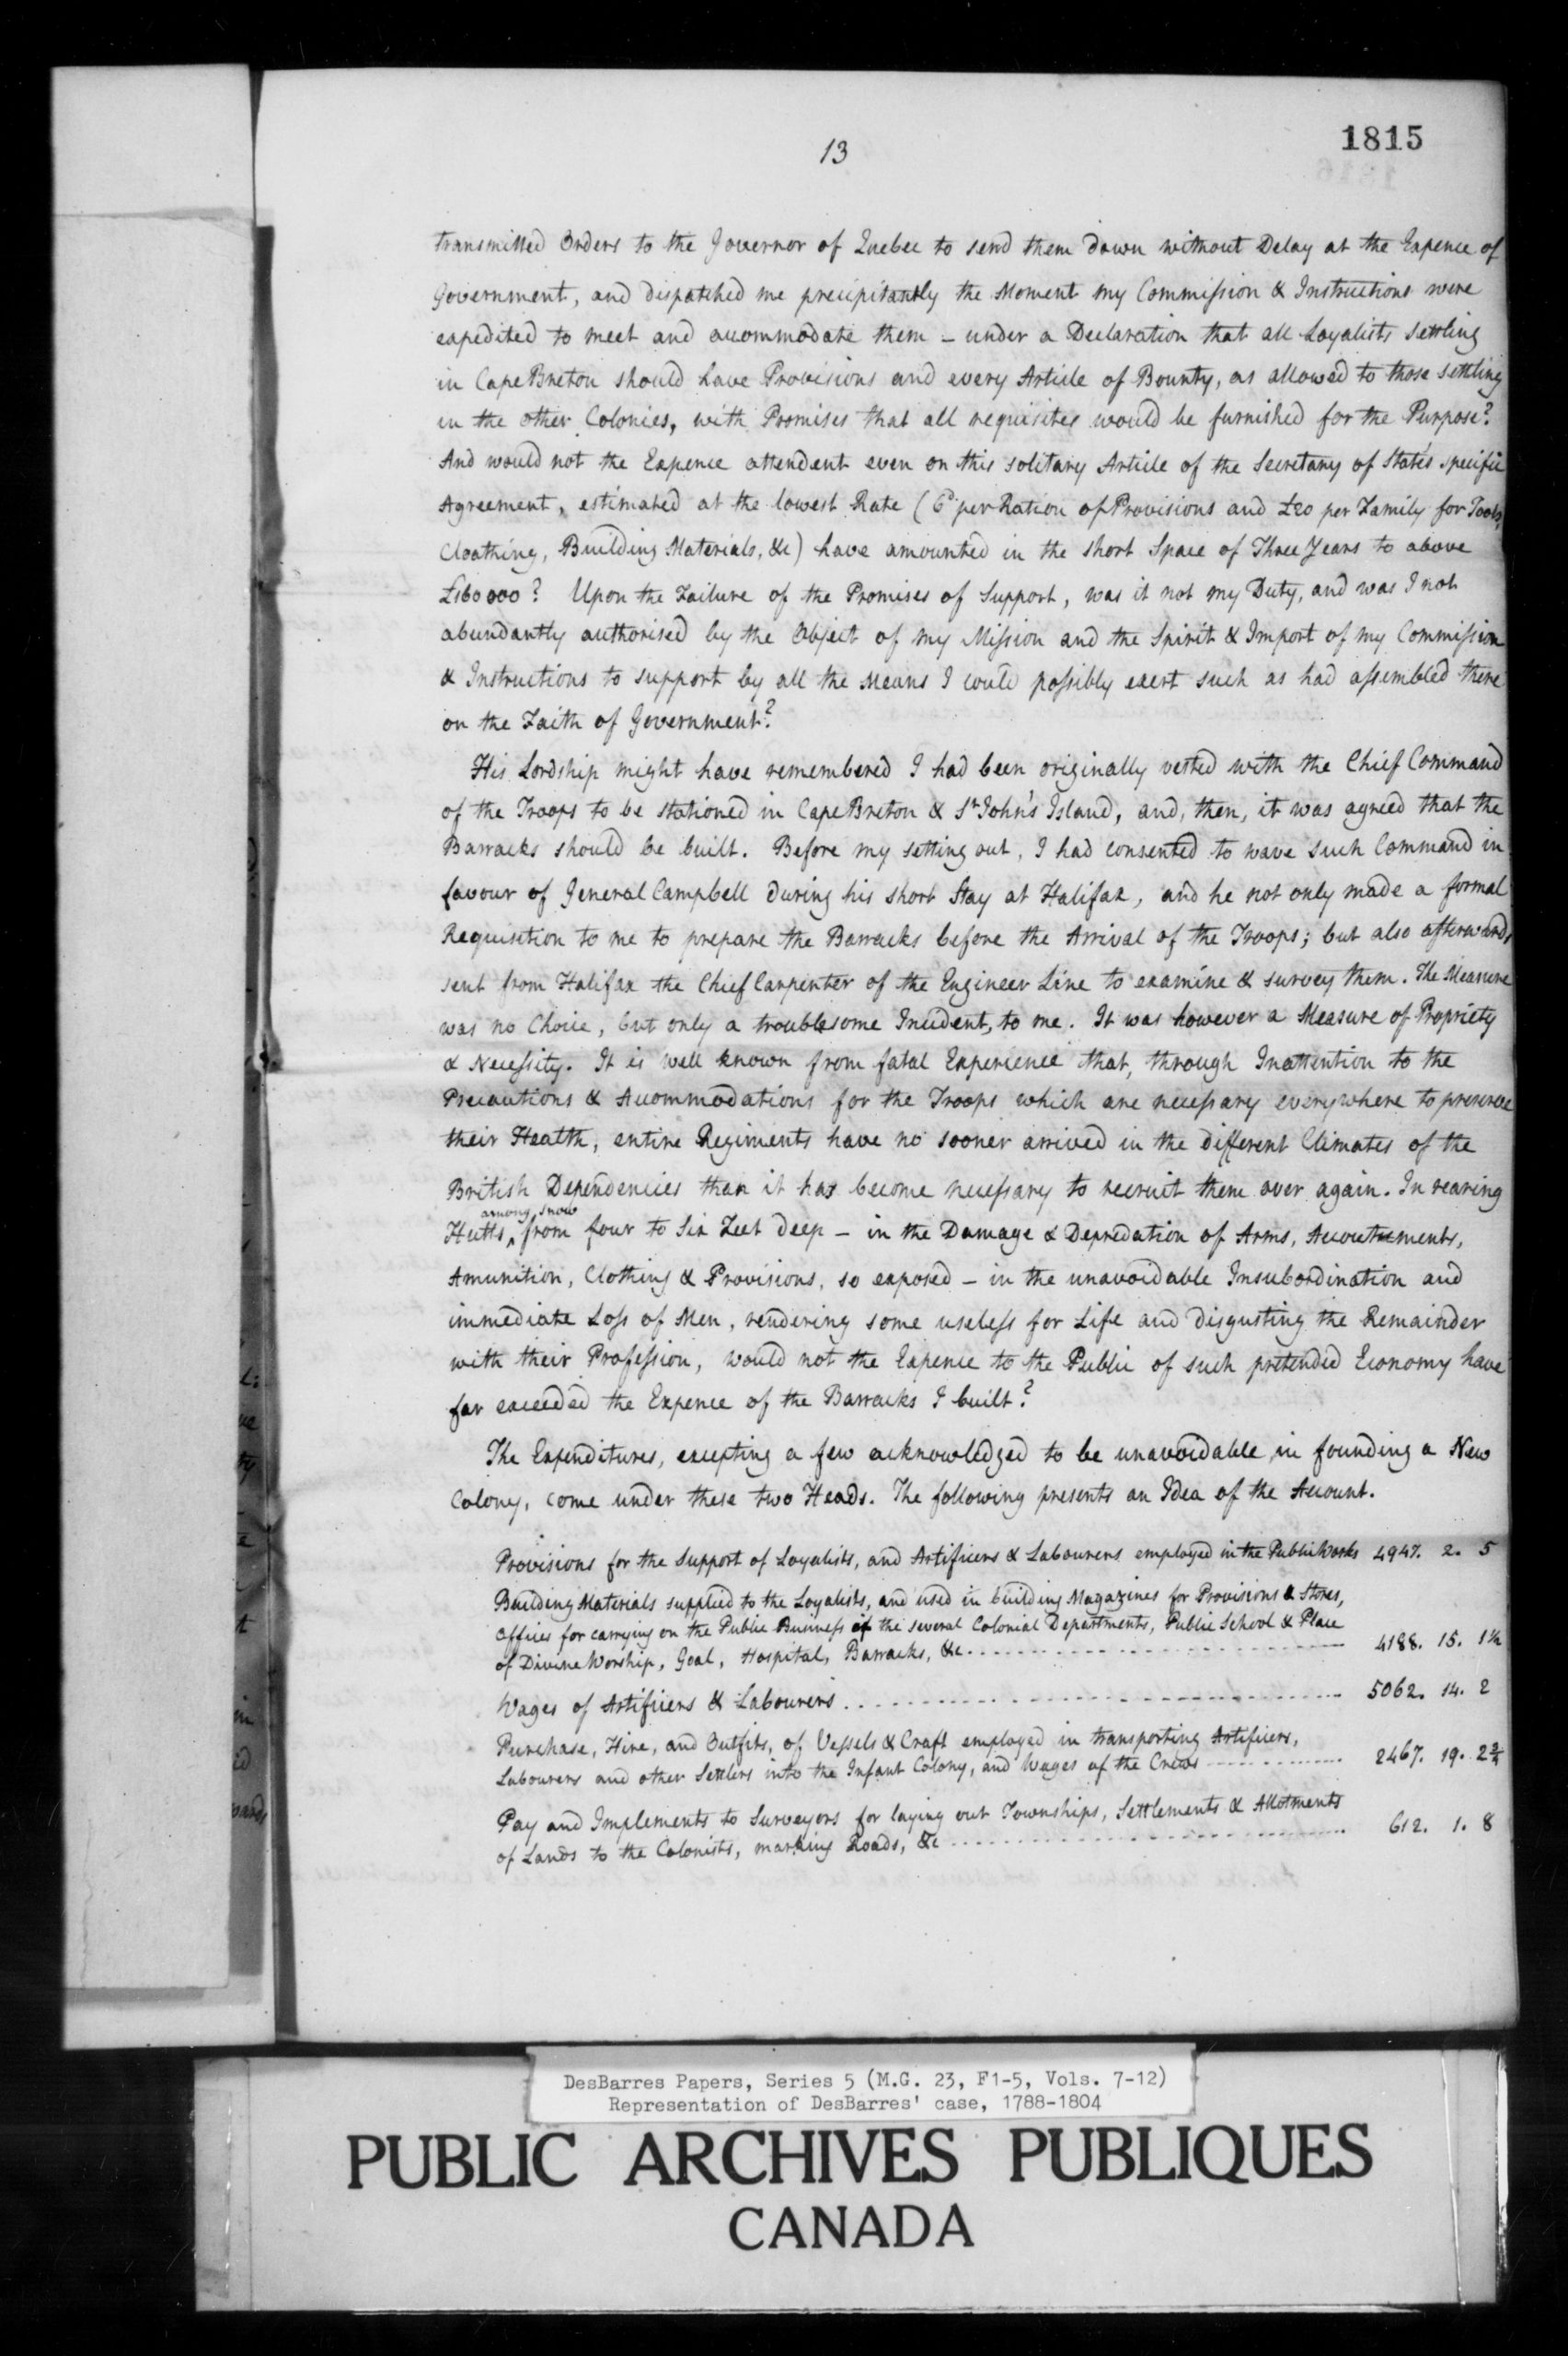 13
1815
transmitted Orders to the Governor of Quebec to send them down without Delay at the Expence of
Government, and dispatched me precipitantly the Moment my Commission & Instructions were
expedited to meet and accommodate them – under a Declaration that all Loyalists settling
in Cape Breton should have Provisions and every Article of Bounty, as allowed to those settling
in the other Colonies, with Promises that all requisites would be furnished for the Purpose?
And would not the Expence attendent even on this solitary Article of the Secretary of State's specific
Agreement, estimated at the lowest Rate (6d per Ration of Provisions and £20 per Family for Tools,
Cloathing, Building Materials, &c) have amounted in the short Space of Three Years to above
£160000? Upon the Failure of the Promises of Support, was it not my Duty, and was I not
abundantly authorised by the Object of my Mission and the Spirit & Import of my Commission
& Instructions to support by all the Means I could possibly exert such as had assembled there
on the Faith of Government?
His Lordship might have remembered I had been originally vested with the Chief Command
of the Troops to be stationed in Cape Breton & St John's Island, and, then, it was agreed that the
Barracks should be built. Before my setting out, I had consented to wave such Command in
favour of General Campbell during his short Stay at Halifax, and he not only made a formal
Requisition to me to prepare the Barracks before the Arrival of the Troops; but also afterwards
sent from Halifax the Chief Carpenter of the Engineer Line to examine & survey them. The Measure
was no Choice, but only a troublesome Incident, to me. It was however a Measure of Propriety
& Necessity. It is well known from fatal Experience that, through Inattention to the
Precautions & Accommodations for the Troops which are necessary everywhere to preserve
their Health, entire Regiments have no sooner arrived in the different Climates of the
British Dependencies than it has become necessary to recruit them over again. In rearing
among snow
Hutts, from four to Six Feet deep – in the Damage & Depredation of Arms, Accoutrements,
Amunition, Clothing & Provisions, so exposed – in the unavoidable Insubordination and
immediate Loss of Men, rendering some useless for Life and disgusting the Remainder
with their Profession, would not the Expence to the Public of such pretended Economy have
far exceeded the Expence of the Barracks I built?
The Expenditures, excepting a few acknowledged to be unavoidable in founding a New
Colony, come under these two Heads. The following presents an Idea of the Account.
Provisions for the Support of Loyalists, and Artificers & Labourers employed in the Public Works 4947. 2. 5
Building Materials supplied to the Loyalists, and used in building Magazines for Provisions & Stores,
Offices for carrying on the Public Business of the several Colonial Departments, Public School & Place
of Divine Worship, Goal, Hospital, Barracks, &c 4188. 15. 1½
Wages of Artificers & Labourers 5062. 14. 2
Purchase, Hire, and Outfits, of Vessels & Craft employed in transporting Artificers,
Labourers and other Settlers into the Infant Colony, and Wages of the Crews 2467. 19. 2¾
Pay and Implements to Surveyors for laying out Townships, Settlements & Allotments
of Lands to the Colonists, marking Roads, &c 612. 1. 8
DesBarres Papers, Series 5 (M.G. 23, F1-5, Vols. 7-12)
Representation of DesBarres' case, 1788-1804
PUBLIC ARCHIVES PUBLIQUES
CANADA